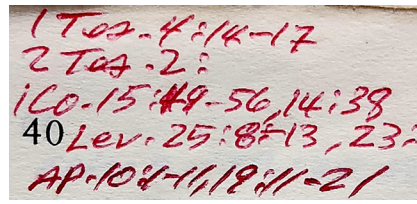 1 Tes. 4:14-17
2 Tes. 2:
1 Co. 15:49-56, 14:38
40 Lev. 25:8-13, 23:
AP. 10:1-11, 19:11-21